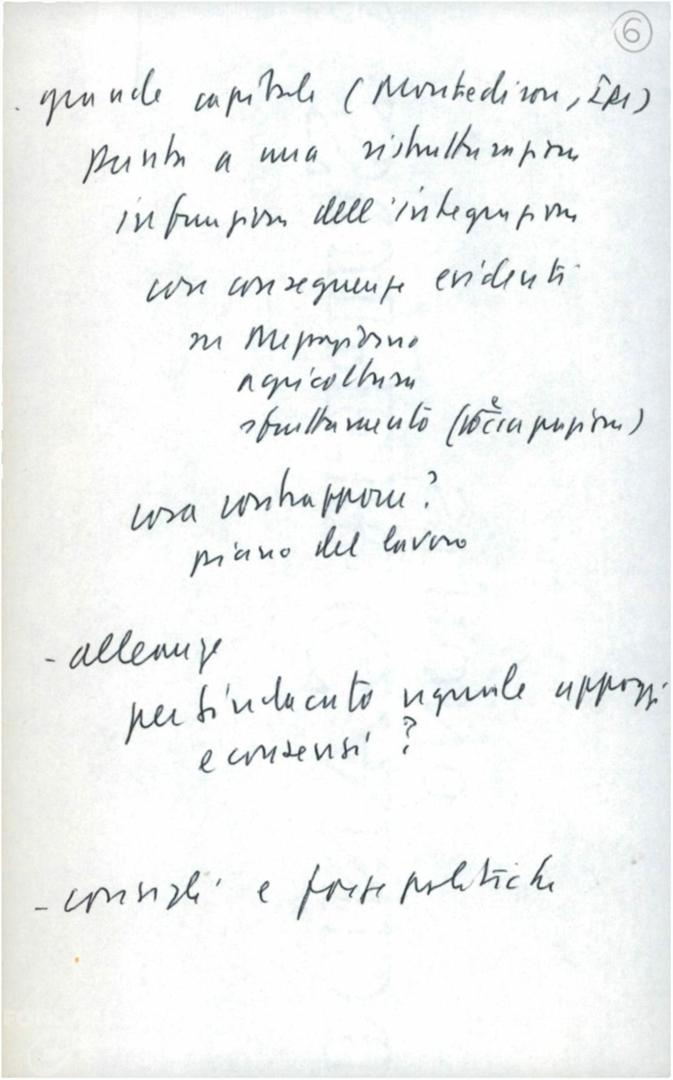 6
. grande capitale (Montedison, IRI)
punta a una ristrutturazione
in funzione dell'integrazione
con conseguenze evidenti
su Mezzogiorno
agricoltura
sfruttamento (occupazione)
cosa contrapporre?
piano del lavoro
- alleanze
per sindacato uguale appoggi
e consensi?
- consigli e forze politiche